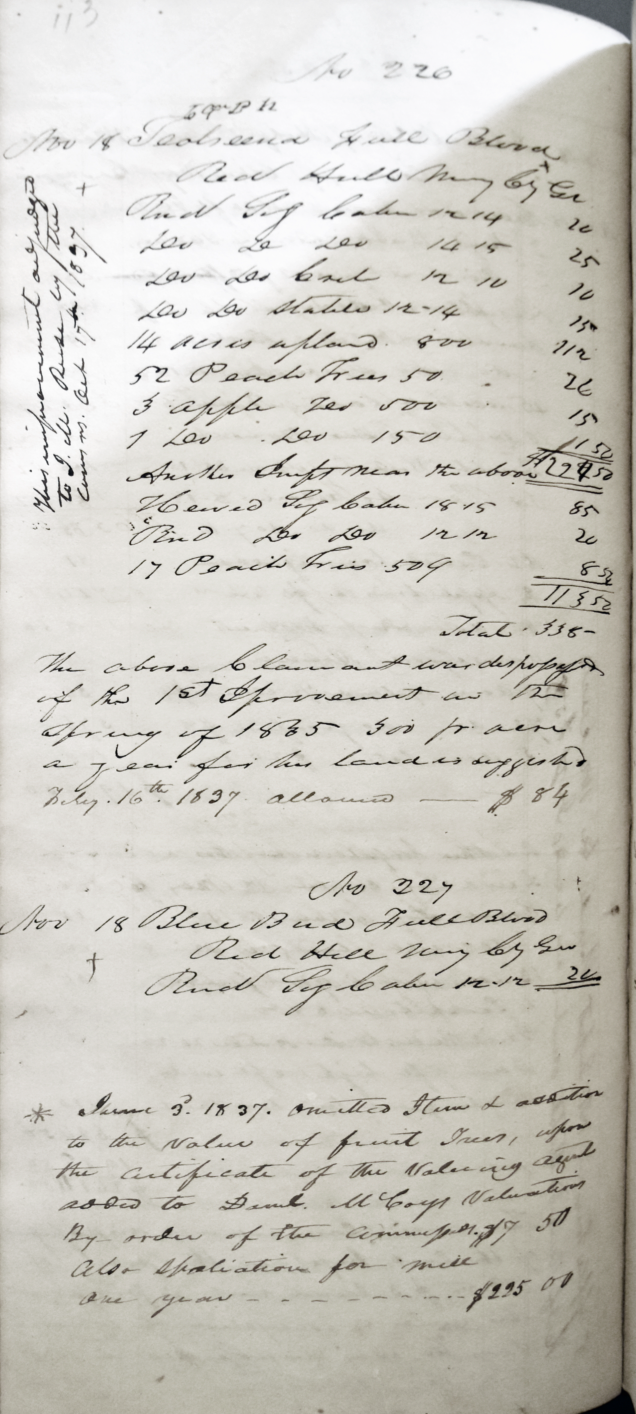 113
No 226
Nov 18 Full Blood
Red Hill Mury Cty Geo
Rnd Log Cabin 12-14 20
Do Do Do 14 15 25
Do Do Crib 12 10 10
Do Do stable 12-14 15
14 acres upland 800 112
52 Peach Trees 50 26
3 apple Do 500 15
1 Do Do 150 1 50
Another Impt near the above $224 50
Hewed Log Cabin 18-15 85
Rnd Do Do 12 12 20
17 Peach Trees 50 8 50
113 50
Total 338-
The above Claimant was dispossessd
of the 1st Iprovement in the
Spring of 1835 300 pr acre
a year for his land is suggested
Feby. 16th. 1837 allowed — $ 84
This improvement adjudged
to J. M. by the
Comms. Oct 17th 1837.
No 227
Nov 18 Blue Bird Full Blood
Red Hill Mury Cty Geo
Rnd Log Cabin 12-12 20
* June 3. 1837. Omitted Item & addition
to the value of fruit Trees, upon
the certificate of the Valueing agent
added to Danl. McCoys Valuation
By order of the Commrs. $7 50
Also Spoliation for mill
one year - - - - - - - $295 00